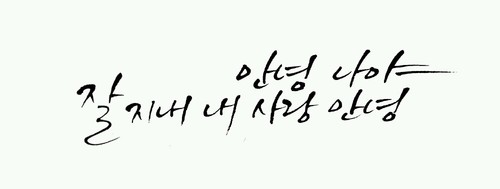 안녕 나야
잘 지내 내 사랑 안녕